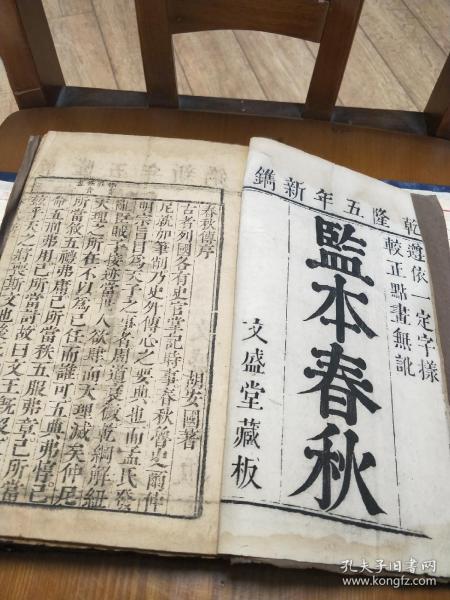 乾隆五年新鐫
遵依一定字樣
較正點畫無訛
監本春秋
文盛堂藏板
春秋傳序
胡安國著
古者列國各有史官掌記時事春秋魯史爾仲
尼就加筆削乃史外傳心之要典也而孟氏發
明宗旨目爲天子之事者周道衰微乾綱解紐
亂臣賊子接迹當世人欲肆而天理滅矣仲尼
天理之所在不以爲己任而誰可五典弗惇己
所當敘五禮弗庸己所當秩五服弗章己所當
命五刑弗用己所當討故曰文王旣沒
孔夫子旧书网
www.kongfz.com